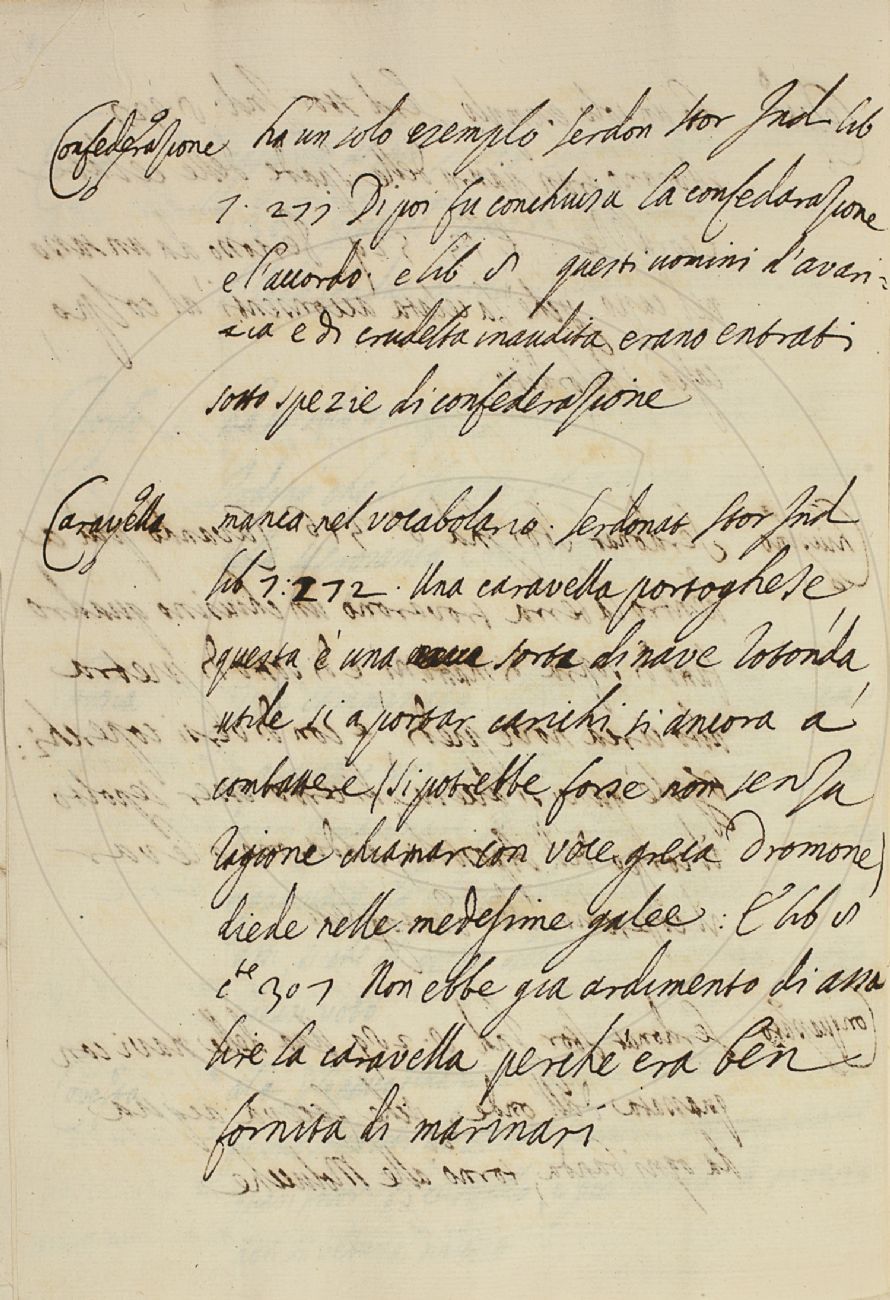 Confederazione ha un solo esemplo Serdon Stor Ind lib
7. 277 Di poi fu conchiusa la confedarazione
e l'accordo; e lib. 8 questi uomini d'avari=
zia e di crudelta inaudita erano entrati
sotto spezie di confederazione
Caravella manca nel vocabolario. Serdonat Stor Ind
lib 7: 272. Una caravella portoghese,
questa è una sorta di nave rotonda
utile si a portar carichi si ancora a
combattere (si potrebbe forse non senza
ragione chiamar con voce greca Dromone)
diede nelle medesime galee: E lib 8
cte 307 Non ebbe gia ardimento di assa
lire la caravella perche era ben
fornita di marinari